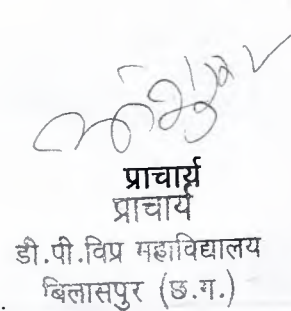 प्राचार्य
प्राचार्य
डी.पी.विप्र महाविद्यालय
बिलासपुर (छ.ग.)